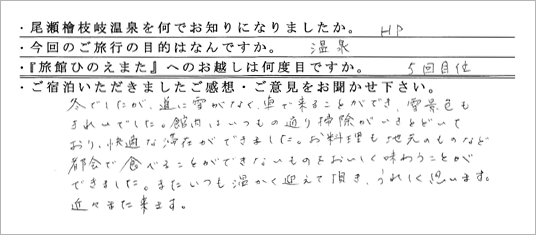 ・尾瀬檜枝岐温泉を何でお知りになりましたか。 HP
・今回のご旅行の目的はなんですか。 温泉
・『旅館ひのえまた』へのお越しは何度目ですか。 5回目位
・ご宿泊いただきましたご感想・ご意見をお聞かせ下さい。
冬でしたが、道に雪がなく、車で来ることができ、雪景色も
きれいでした。館内はいつもの通り掃除がいきとどいて
おり、快適な滞在ができました。お料理も地元のものなど
都会で食べることができないものをおいしく味わうことが
できました。またいつも温かく迎えて頂き、うれしく思います。
近々また来ます。